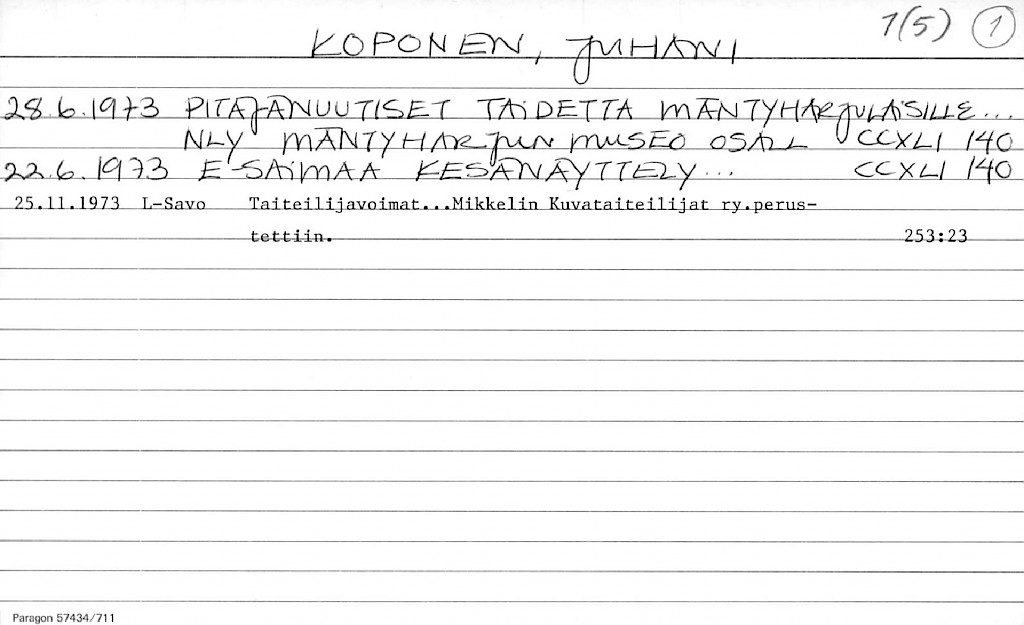 1(5) 1
KOPONEN, JUHANI
28.6.1973 PITÄJÄNUUTISET TAIDETTA MÄNTYHARJULAISILLE...
NLY MÄNTYHARJUN MUSEO OSALL CCXLI 140
22.6.1973 E-SAIMAA KESÄNÄYTTELY... CCXLI 140
25.11.1973 L-Savo Taiteilijavoimat...Mikkelin Kuvataiteilijat ry.perus-
tettiin. 253:23
Paragon 57434/711